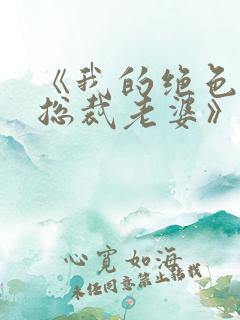 《我的绝色
总裁老婆》
心宽如海
未经同意禁止转载